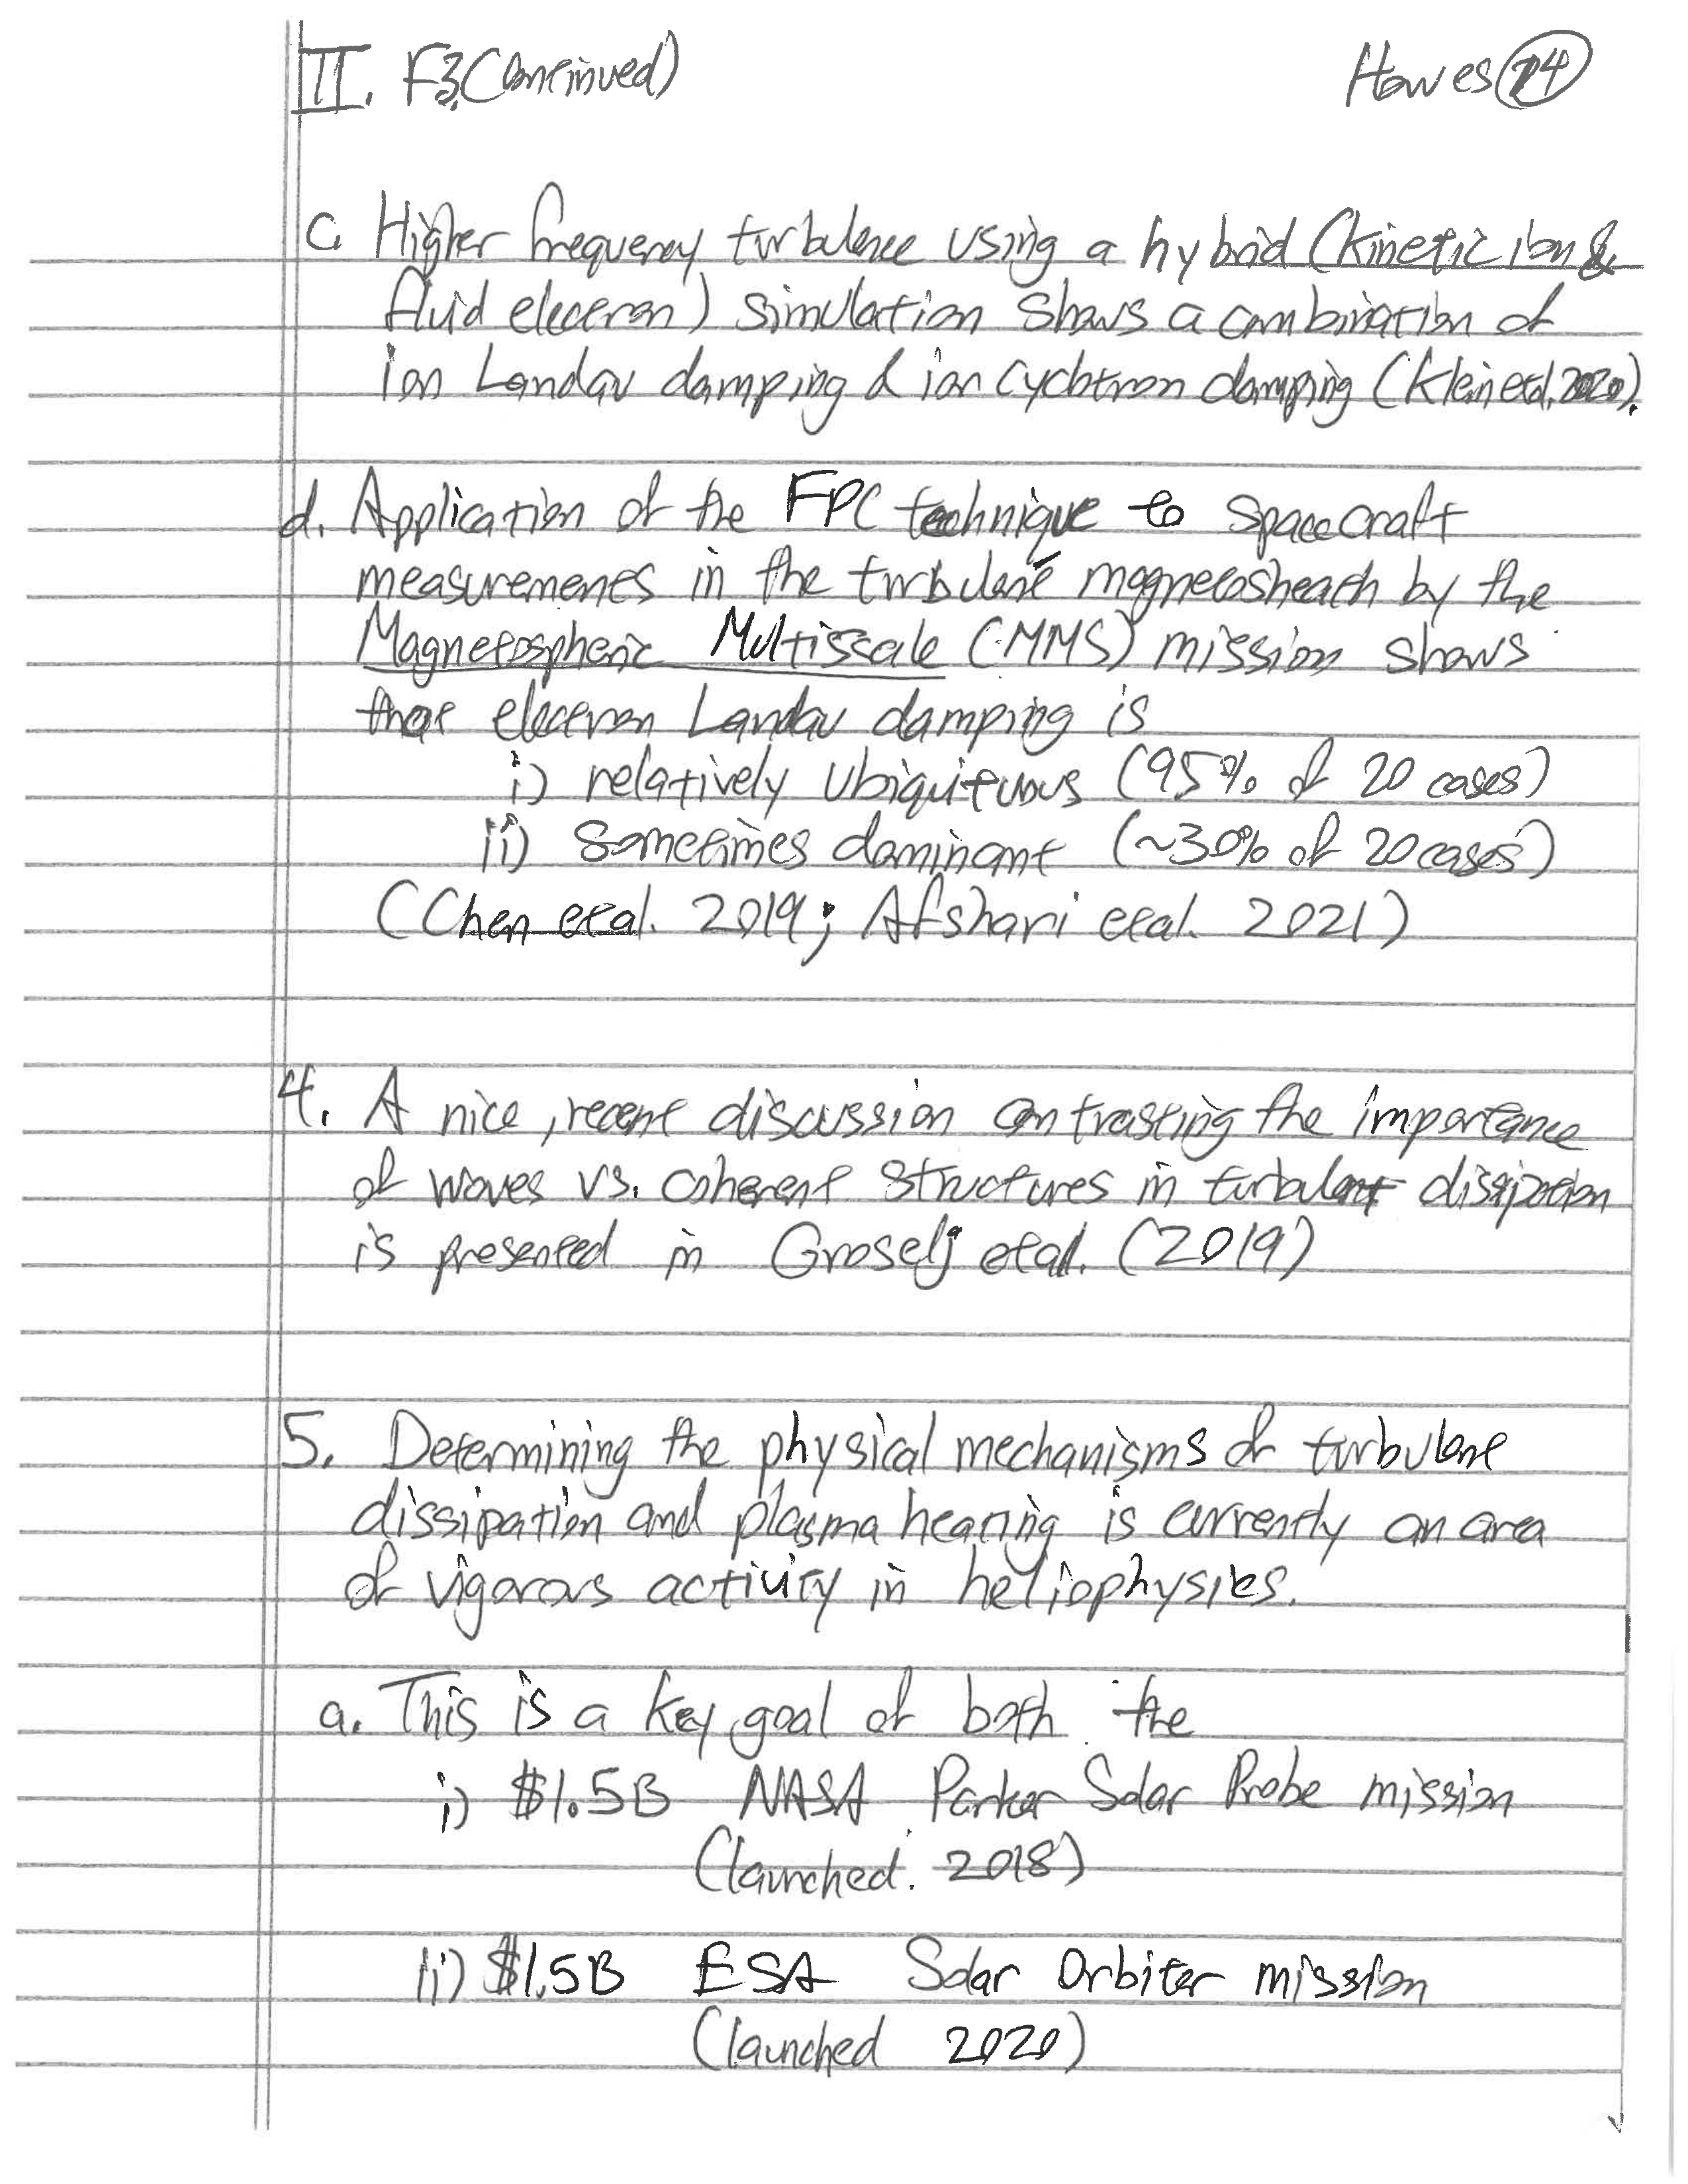 III. F.3. (Continued)
Howes 14
c. Higher frequency turbulence using a hybrid (kinetic ion &
fluid electron) simulation shows a combination of
ion Landau damping & ion cyclotron damping (Klein et al. 2020).
d. Application of the FPC technique to spacecraft
measurements in the turbulent magnetosheath by the
Magnetospheric Multiscale (MMS) mission shows
that electron Landau damping is
i) relatively ubiquituous (95% of 20 cases)
ii) sometimes dominant (~30% of 20 cases)
(Chen et al. 2019; Afshari et al. 2021)
4. A nice, recent discussion contrasting the importance
of waves vs. coherent structures in turbulent dissipation
is presented in Groselj et al. (2019)
5. Determining the physical mechanisms of turbulent
dissipation and plasma heating is currently an area
of vigorous activity in heliophysics.
a. This is a key goal of both the
i) $1.5B NASA Parker Solar Probe mission
(launched 2018)
ii) $1.5B ESA Solar Orbiter mission
(launched 2020)